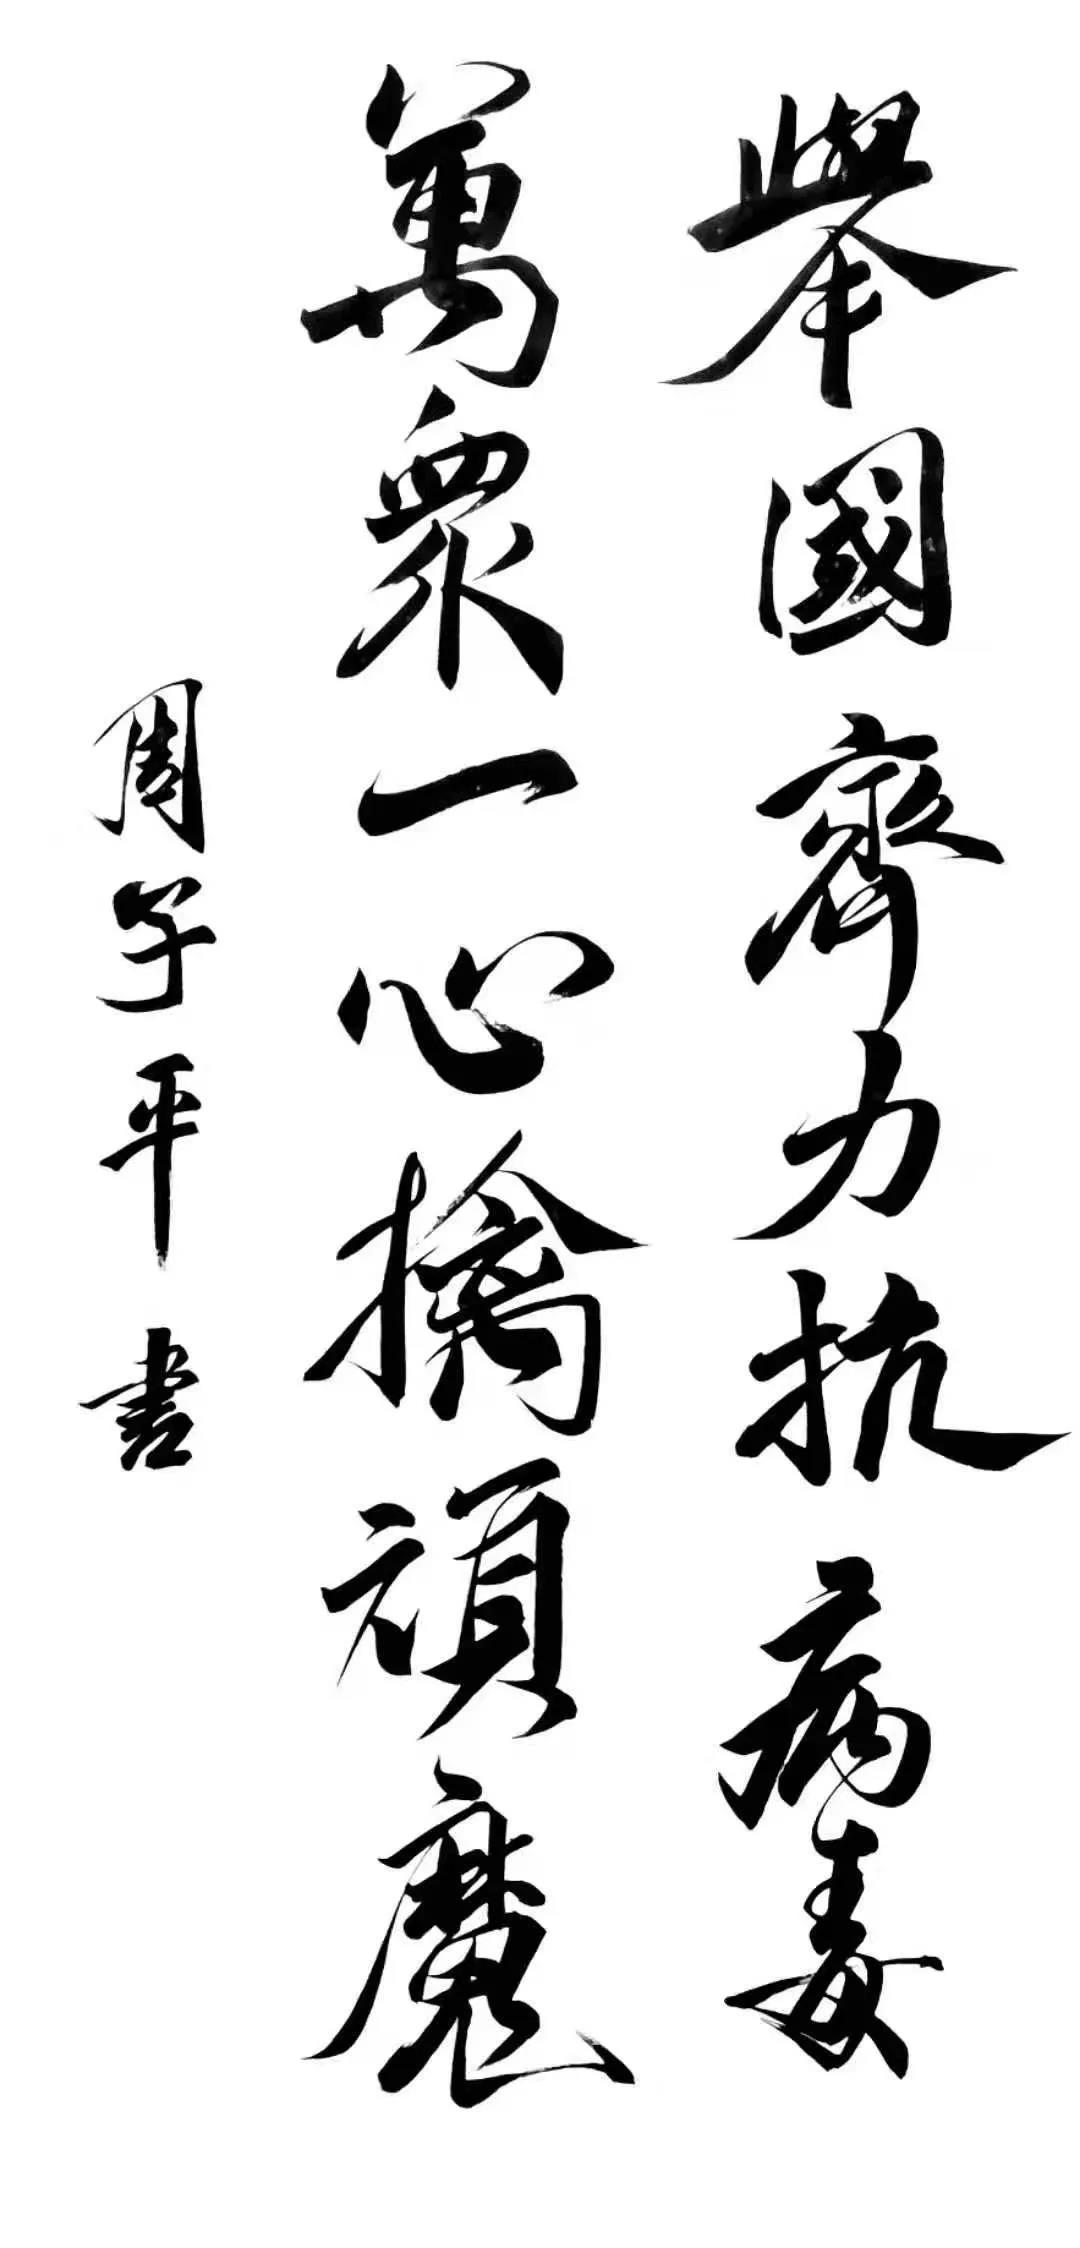 舉國齊力抗病毒
萬眾一心擒頑魔
周子平書